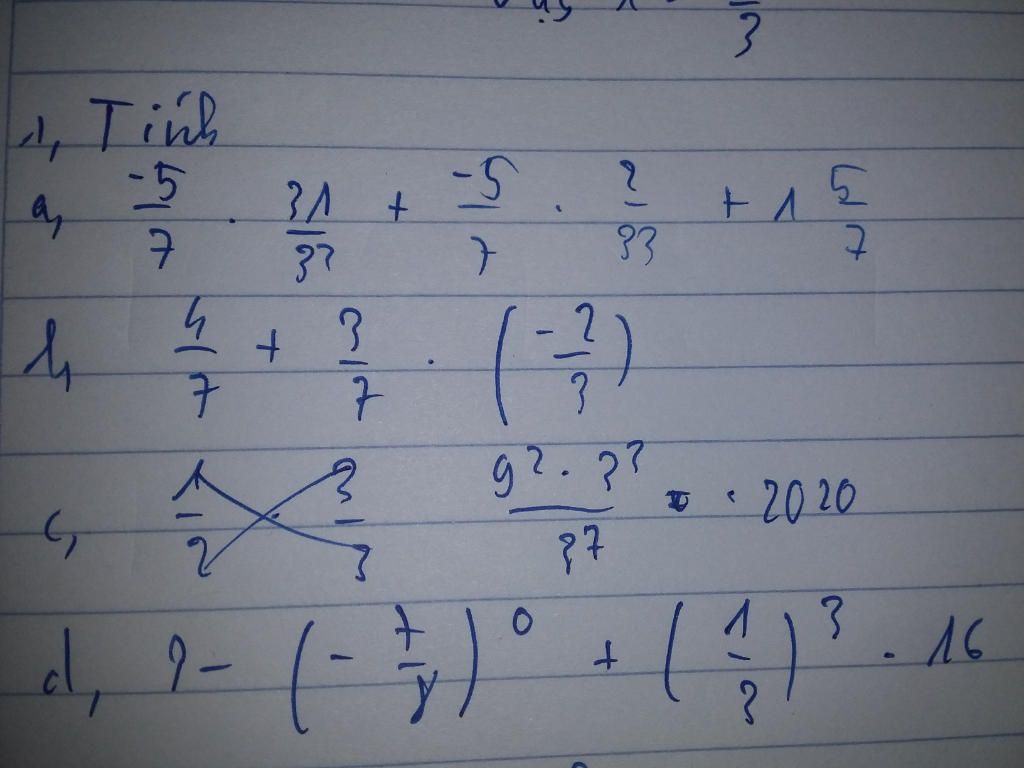 3
1, Tính
a, -5/7 . 31/33 + -5/7 . 2/33 + 1 5/7
b, 4/7 + 3/7 . (-2/3)
c, 9² . 3³/3⁷ . 2020
d, 2 - (-7/8)⁰ + (1/3)³ . 16